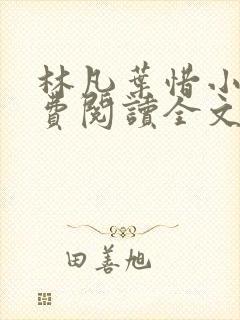 林凡葉惜小
費閱讀全文
田善旭